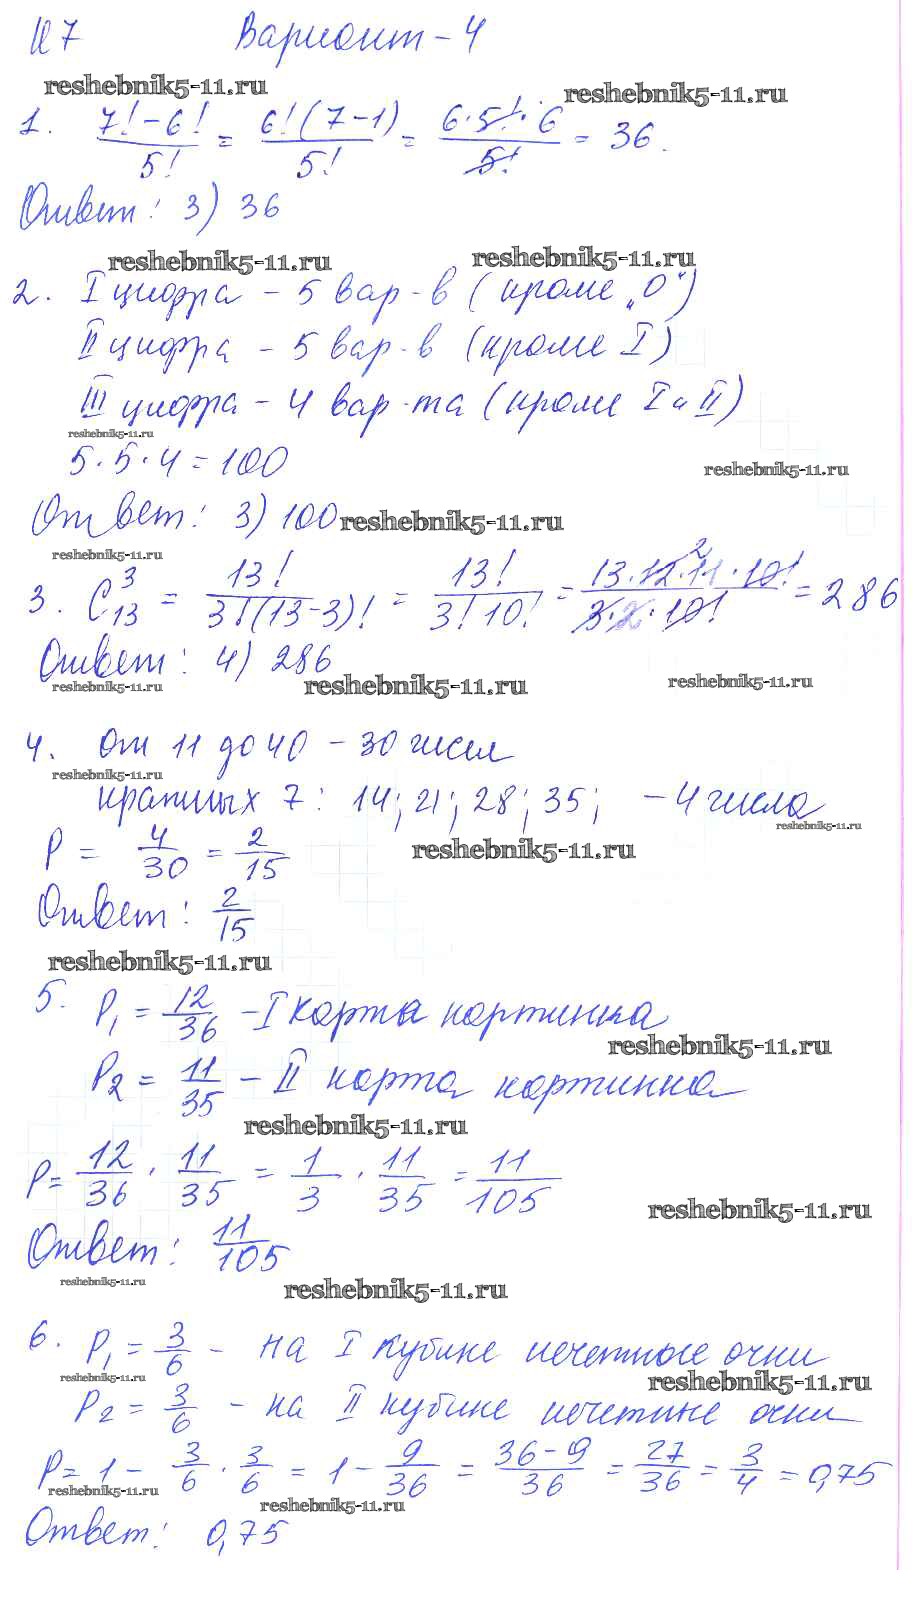 И7 Вариант - 4
reshebnik5-11.ru reshebnik5-11.ru
1. (7! - 6!)/5! = 6!(7-1)/5! = 6·5!·6/5! = 36.
Ответ: 3) 36
reshebnik5-11.ru reshebnik5-11.ru
2. I цифра - 5 вар-в (кроме „0")
II цифра - 5 вар-в (кроме I)
III цифра - 4 вар-та (кроме I и II)
reshebnik5-11.ru
5·5·4 = 100
reshebnik5-11.ru
Ответ: 3) 100 reshebnik5-11.ru
reshebnik5-11.ru
3. C₁₃³ = 13!/3!(13-3)! = 13!/3!10! = 13·12·11·10!/3·2·10! = 286
Ответ: 4) 286
reshebnik5-11.ru reshebnik5-11.ru reshebnik5-11.ru
4. От 11 до 40 - 30 чисел
reshebnik5-11.ru
кратных 7: 14; 21; 28; 35; - 4 числа
reshebnik5-11.ru
P = 4/30 = 2/15 reshebnik5-11.ru
Ответ: 2/15
reshebnik5-11.ru
5. P₁ = 12/36 - I карта картинка
reshebnik5-11.ru
P₂ = 11/35 - II карта картинка
reshebnik5-11.ru
P = 12/36 · 11/35 = 1/3 · 11/35 = 11/105
reshebnik5-11.ru
Ответ: 11/105
reshebnik5-11.ru reshebnik5-11.ru
6. P₁ = 3/6 - на I кубике нечетные очки
reshebnik5-11.ru reshebnik5-11.ru
P₂ = 3/6 - на II кубике нечетные очки
P = 1 - 3/6 · 3/6 = 1 - 9/36 = (36-9)/36 = 27/36 = 3/4 = 0,75
reshebnik5-11.ru reshebnik5-11.ru
Ответ: 0,75